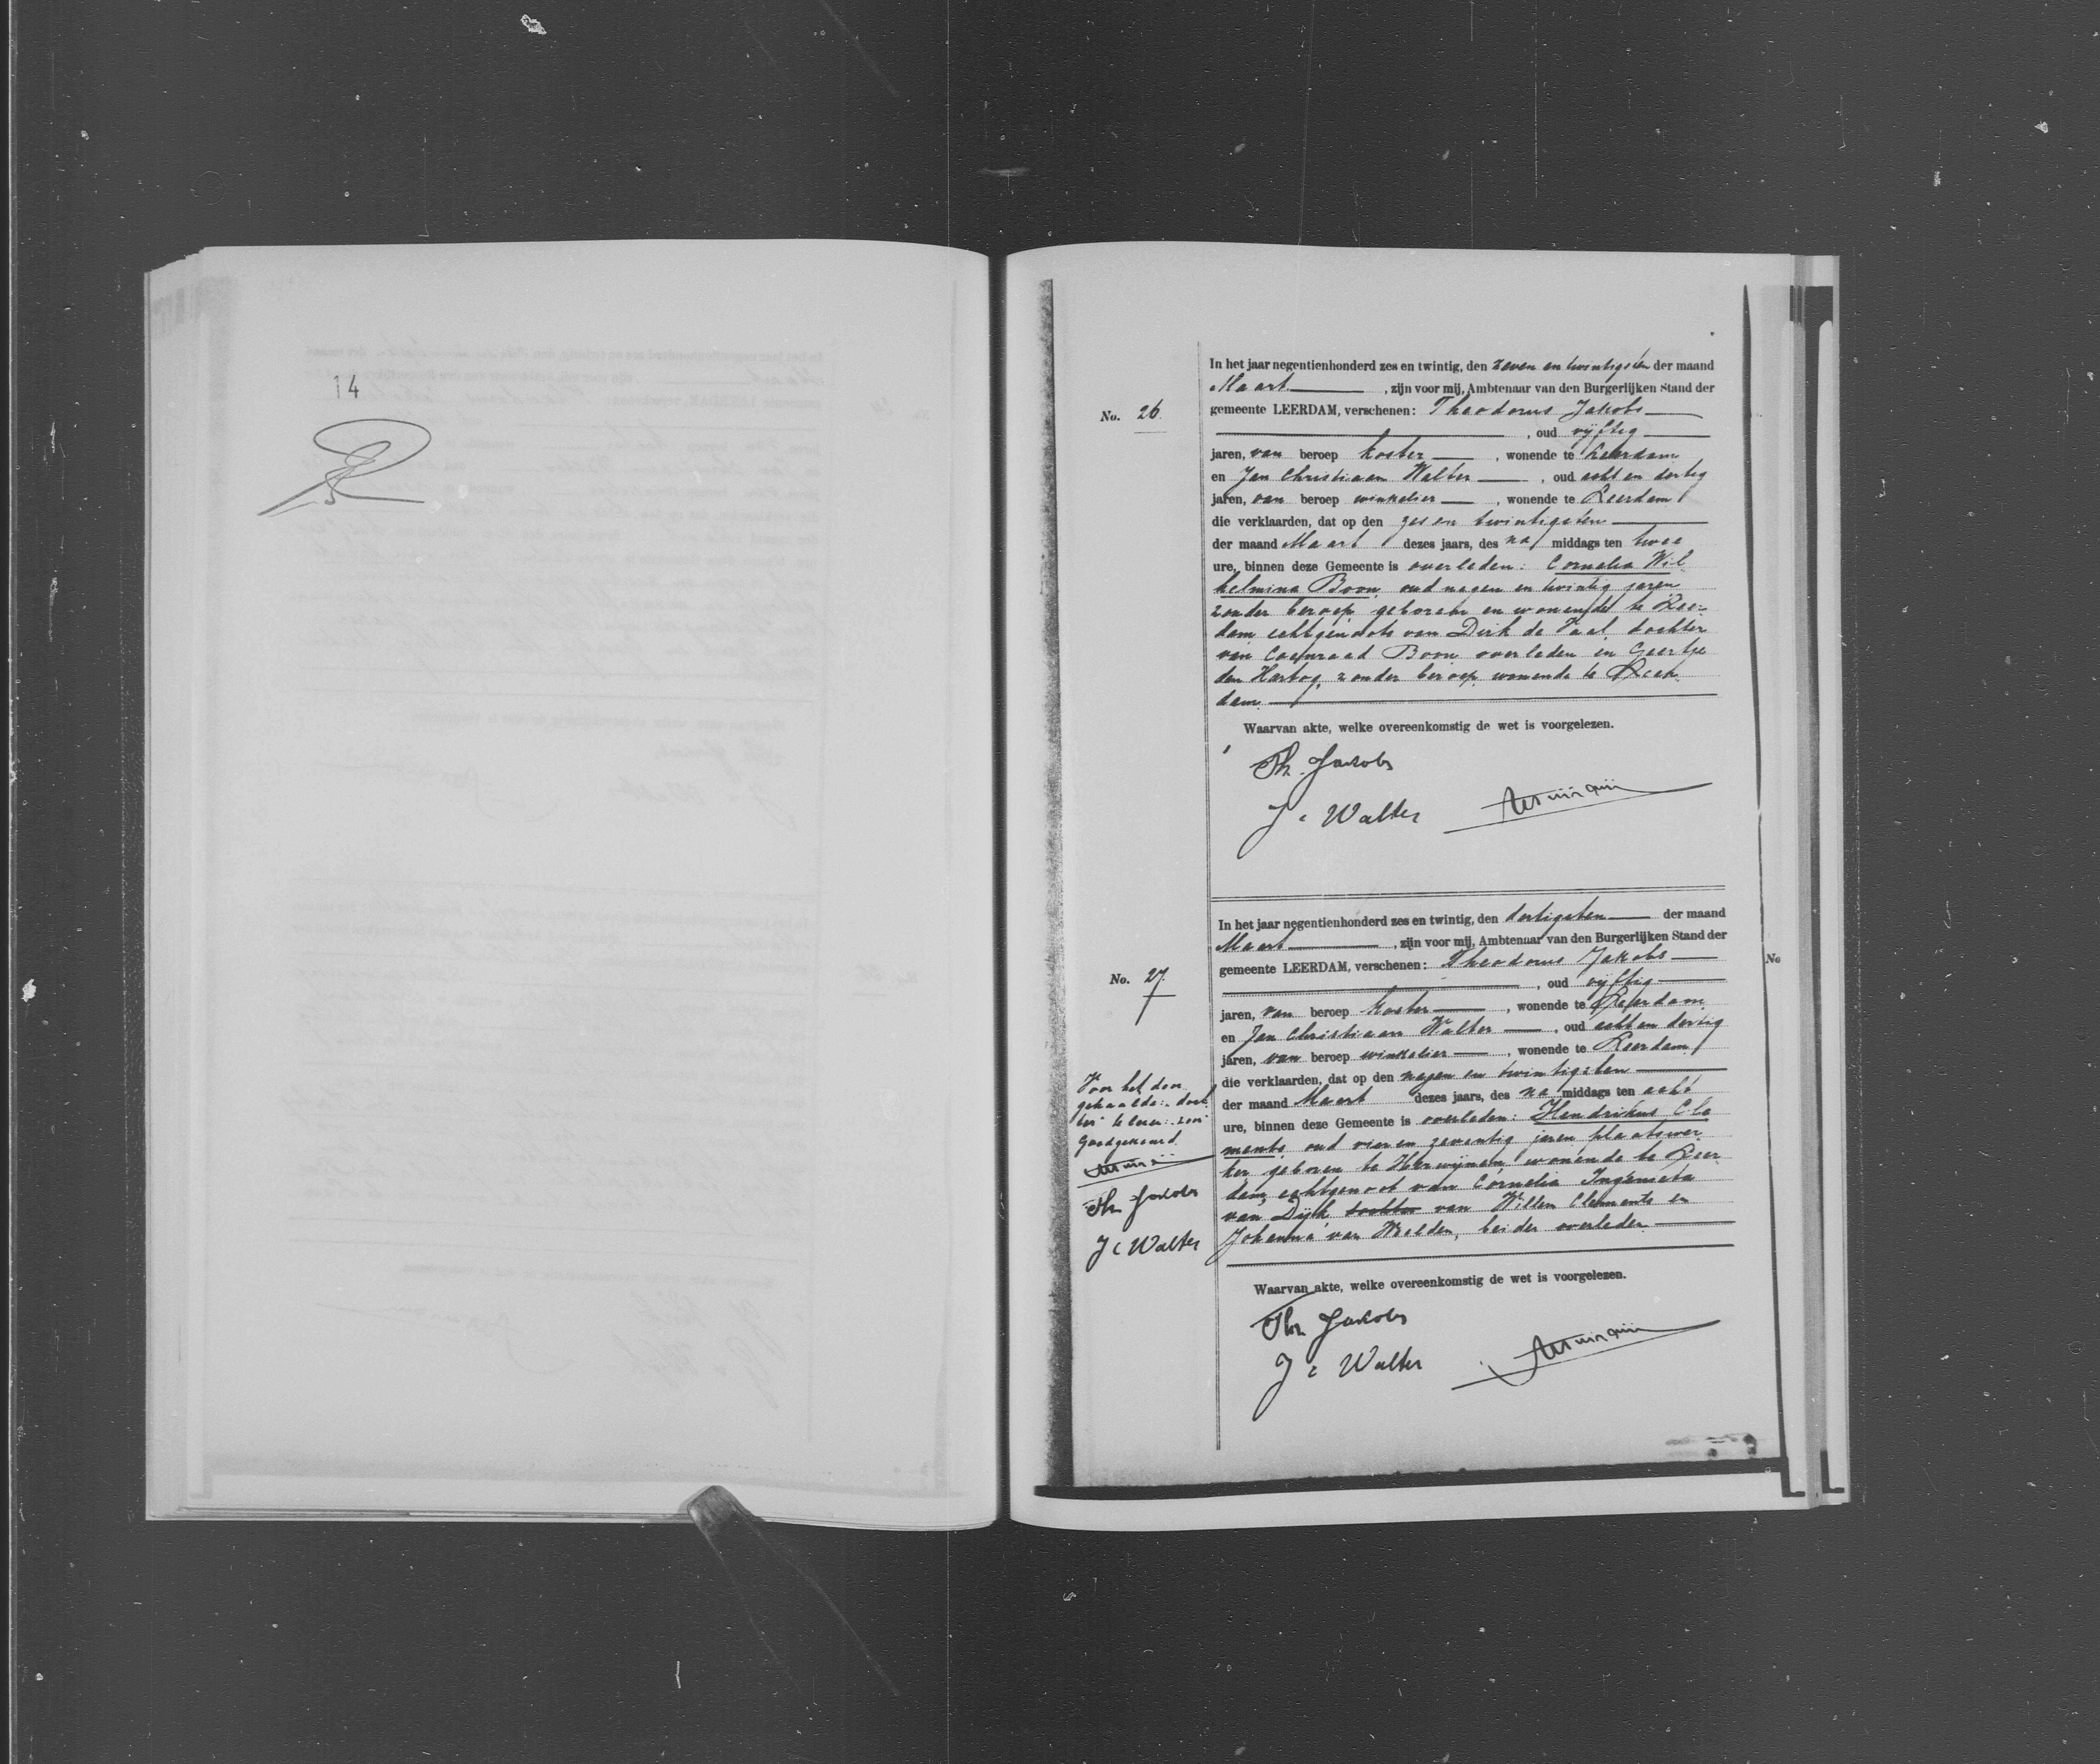 14
No. 26
In het jaar negentienhonderd zes en twintig, den zeven en twintigsten der maand
Maart , zijn voor mij, Ambtenaar van den Burgerlijken Stand der
gemeente LEERDAM, verschenen: Theodorus Jakobs
, oud vijftig
jaren, van beroep koster , wonende te Leerdam
en Jan Christiaan Walter , oud acht en dertig
jaren, van beroep winkelier , wonende te Leerdam
die verklaarden, dat op den zes en twintigsten
der maand Maart dezes jaars, des na middags ten twee
ure, binnen deze Gemeente is overleden: Cornelia Wil-
helmina Boon, oud negen en twintig jaren
zonder beroep, geboren en wonende te Leer-
dam echtgenoote van Dirk de Vaal, dochter
van Coenraad Boon overleden en Geertje
den Hartog, zonder beroep, wonende te Leer-
dam.
Waarvan akte, welke overeenkomstig de wet is voorgelezen.
Th. Jakobs
J C Walter
No. 27.
In het jaar negentienhonderd zes en twintig, den dertigsten der maand
Maart , zijn voor mij, Ambtenaar van den Burgerlijken Stand der
gemeente LEERDAM, verschenen: Theodorus Jakobs
, oud vijftig
jaren, van beroep koster , wonende te Leerdam
en Jan Christiaan Walter , oud acht en dertig
jaren, van beroep winkelier , wonende te Leerdam
die verklaarden, dat op den negen en twintigsten
der maand Maart dezes jaars, des na middags ten acht
ure, binnen deze Gemeente is overleden: Hendrikus Cle
ments oud vier en zeventig jaren plaatswer-
ker geboren te Herwijnen, wonende te Leer-
dam, echtgenoot van Cornelia Ingenieta
van Dijk dochter van Willem Clements en
Johanna van Weelden, beiden overleden
Waarvan akte, welke overeenkomstig de wet is voorgelezen.
Th Jakobs
J C Walter
Voor het door
gehaalde: "doch
ter" te lezen: "zoon"
Goedgekeurd.
Th Jakobs
J C Walter
No